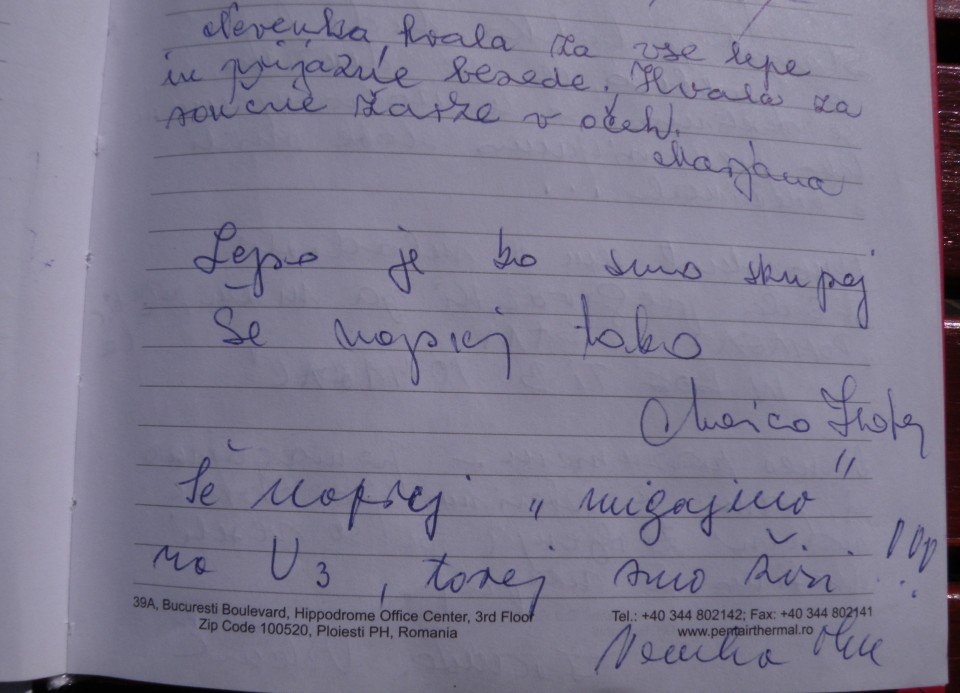 Nevenka, hvala za vse lepe
in prijazne besede. Hvala za
sončne žarke v očeh.
Marjana
Lepo je ko smo skupej
Še naprej tako
Še naprej "migajmo"
na U3, torej smo živi !!!
39A, Bucuresti Boulevard, Hippodrome Office Center, 3rd Floor
Zip Code 100520, Ploiesti PH, Romania
Tel.: +40 344 802142; Fax: +40 344 802141
www.pentairthermal.ro